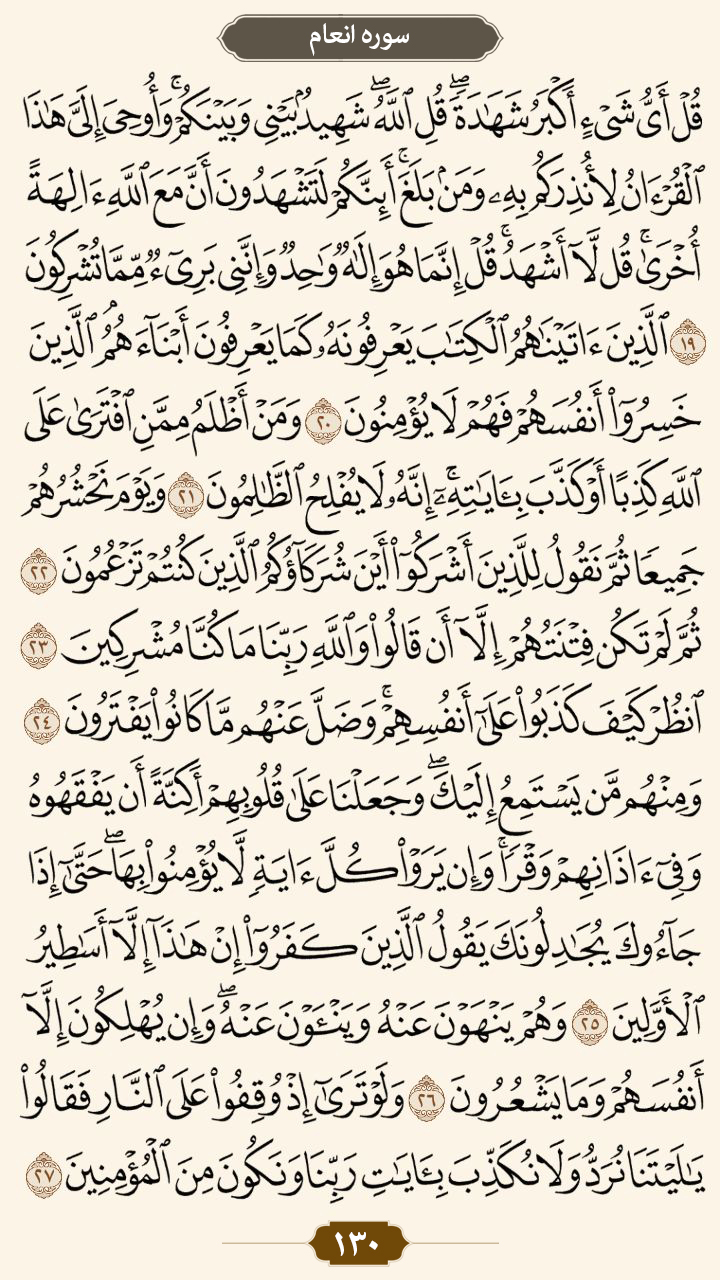 سوره انعام
قُلْ أَىُّ شَىْءٍ أَكْبَرُ شَهَٰدَةً ۖ قُلِ ٱللَّهُ ۖ شَهِيدٌۢ بَيْنِى وَبَيْنَكُمْ ۚ وَأُوحِىَ إِلَىَّ هَٰذَا
ٱلْقُرْءَانُ لِأُنذِرَكُم بِهِۦ وَمَنۢ بَلَغَ ۚ أَئِنَّكُمْ لَتَشْهَدُونَ أَنَّ مَعَ ٱللَّهِ ءَالِهَةً
أُخْرَىٰ ۚ قُل لَّآ أَشْهَدُ ۚ قُلْ إِنَّمَا هُوَ إِلَٰهٌ وَٰحِدٌ وَإِنَّنِى بَرِىٓءٌ مِّمَّا تُشْرِكُونَ
١٩ ٱلَّذِينَ ءَاتَيْنَٰهُمُ ٱلْكِتَٰبَ يَعْرِفُونَهُۥ كَمَا يَعْرِفُونَ أَبْنَآءَهُمُ ۘ ٱلَّذِينَ
خَسِرُوٓا۟ أَنفُسَهُمْ فَهُمْ لَا يُؤْمِنُونَ ٢٠ وَمَنْ أَظْلَمُ مِمَّنِ ٱفْتَرَىٰ عَلَى
ٱللَّهِ كَذِبًا أَوْ كَذَّبَ بِـَٔايَٰتِهِۦٓ ۗ إِنَّهُۥ لَا يُفْلِحُ ٱلظَّٰلِمُونَ ٢١ وَيَوْمَ نَحْشُرُهُمْ
جَمِيعًا ثُمَّ نَقُولُ لِلَّذِينَ أَشْرَكُوٓا۟ أَيْنَ شُرَكَآؤُكُمُ ٱلَّذِينَ كُنتُمْ تَزْعُمُونَ ٢٢
ثُمَّ لَمْ تَكُن فِتْنَتُهُمْ إِلَّآ أَن قَالُوا۟ وَٱللَّهِ رَبِّنَا مَا كُنَّا مُشْرِكِينَ ٢٣
ٱنظُرْ كَيْفَ كَذَبُوا۟ عَلَىٰٓ أَنفُسِهِمْ ۚ وَضَلَّ عَنْهُم مَّا كَانُوا۟ يَفْتَرُونَ ٢٤
وَمِنْهُم مَّن يَسْتَمِعُ إِلَيْكَ ۖ وَجَعَلْنَا عَلَىٰ قُلُوبِهِمْ أَكِنَّةً أَن يَفْقَهُوهُ
وَفِىٓ ءَاذَانِهِمْ وَقْرًا ۚ وَإِن يَرَوْا۟ كُلَّ ءَايَةٍ لَّا يُؤْمِنُوا۟ بِهَا ۖ حَتَّىٰٓ إِذَا
جَآءُوكَ يُجَٰدِلُونَكَ يَقُولُ ٱلَّذِينَ كَفَرُوٓا۟ إِنْ هَٰذَآ إِلَّآ أَسَٰطِيرُ
ٱلْأَوَّلِينَ ٢٥ وَهُمْ يَنْهَوْنَ عَنْهُ وَيَنْـَٔوْنَ عَنْهُ ۖ وَإِن يُهْلِكُونَ إِلَّآ
أَنفُسَهُمْ وَمَا يَشْعُرُونَ ٢٦ وَلَوْ تَرَىٰٓ إِذْ وُقِفُوا۟ عَلَى ٱلنَّارِ فَقَالُوا۟
يَٰلَيْتَنَا نُرَدُّ وَلَا نُكَذِّبَ بِـَٔايَٰتِ رَبِّنَا وَنَكُونَ مِنَ ٱلْمُؤْمِنِينَ ٢٧
١٣٠